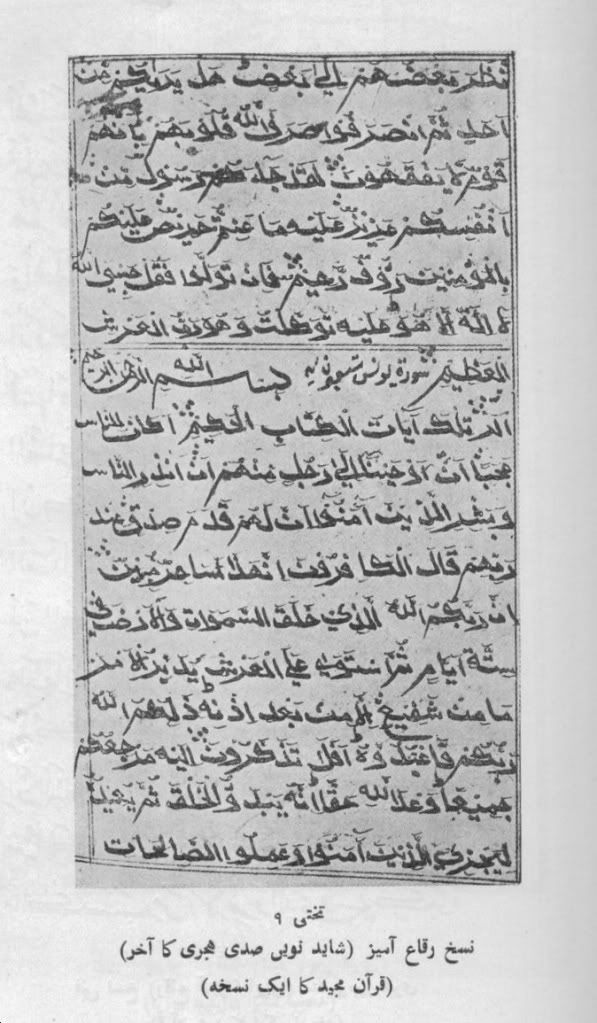 نظر بعضهم الى بعض هل يريكم من
احد ثم انصرفوا صرف الله قلوبهم بانهم
قوم لا يفقهون لقد جاءكم رسول من
انفسكم عزيز عليه ما عنتم حريص عليكم
بالمؤمنين رؤف رحيم فان تولوا فقل حسبي الله
لا اله الا هو عليه توكلت وهو رب العرش
العظيم سورة يونس بسم الله الرحمن الرحيم
الر تلك آيات الكتاب الحكيم اكان للناس
عجبا ان اوحينا الى رجل منهم ان انذر الناس
وبشر الذين آمنوا ان لهم قدم صدق عند
ربهم قال الكافرون ان هذا لساحر مبين
ان ربكم الله الذي خلق السموات والارض في
ستة ايام ثم استوى على العرش يدبر الامر
ما من شفيع الا من بعد اذنه ذلكم الله
ربكم فاعبدوه افلا تذكرون اليه مرجعكم
جميعا وعد الله حقا انه يبدؤ الخلق ثم يعيده
ليجزي الذين آمنوا وعملوا الصالحات
تختی ۹
نسخ رقاع آمیز (شاید نویں صدی ہجری کا آخر)
(قرآن مجید کا ایک نسخہ)